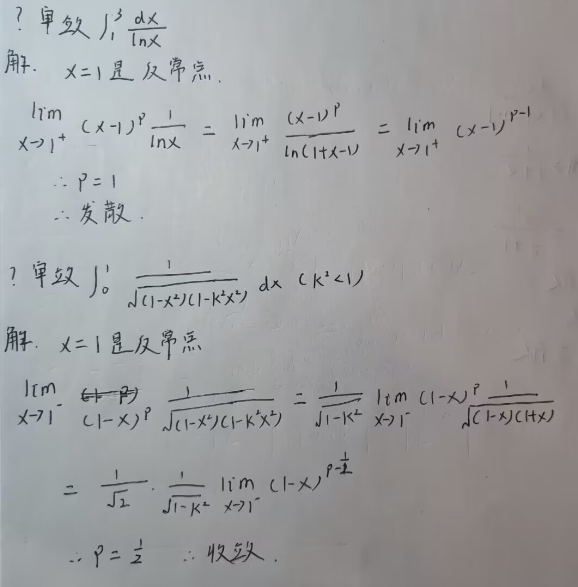 ? 审敛 ∫₁³ dx/lnx
解. x=1是反常点.
lim x→1⁺ (x-1)ᵖ 1/lnx = lim x→1⁺ (x-1)ᵖ/ln(1+x-1) = lim x→1⁺ (x-1)ᵖ⁻¹
∴ p=1
∴ 发散.
? 审敛 ∫₀¹ 1/√((1-x²)(1-k²x²)) dx (k²<1)
解. x=1是反常点
lim x→1⁻ (1-x)ᵖ 1/√((1-x²)(1-k²x²)) = 1/√(1-k²) lim x→1⁻ (1-x)ᵖ 1/√((1-x)(1+x))
= 1/√2 · 1/√(1-k²) lim x→1⁻ (1-x)^(p-1/2)
∴ p=1/2 ∴ 收敛.